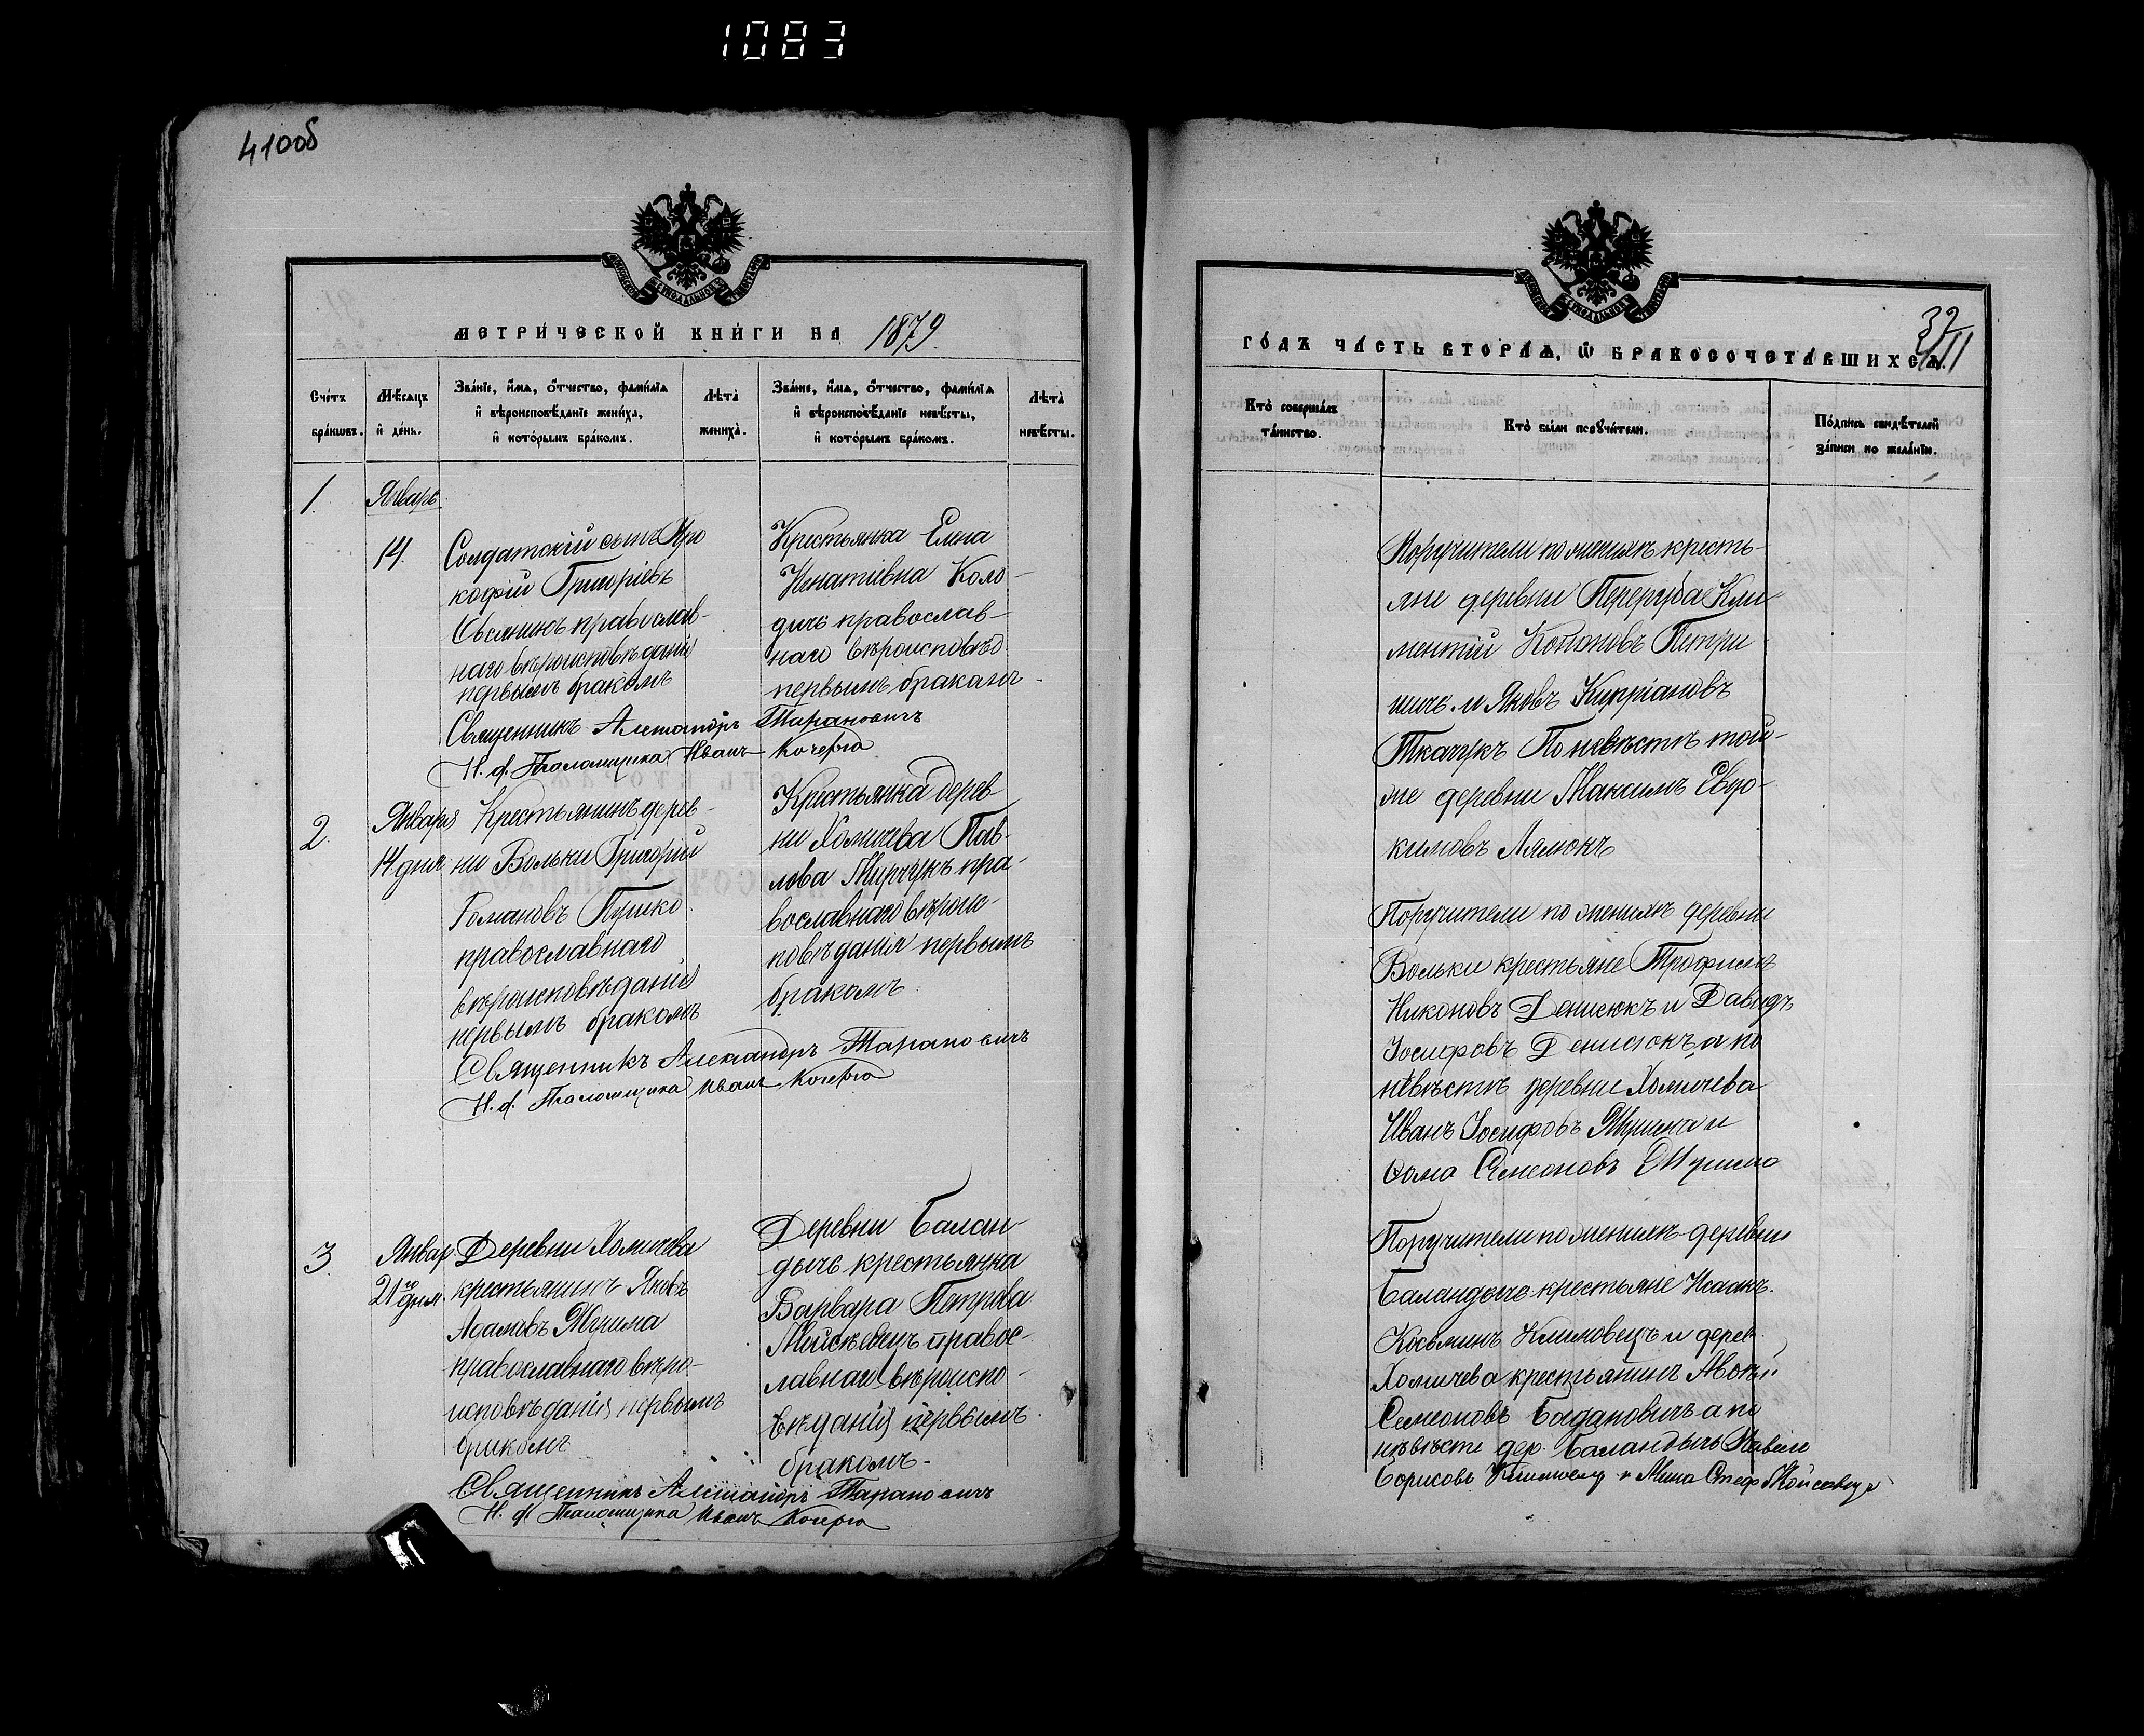 1083
410об
МЕТРИ́ЧЕСКОЙ КНИ́ГИ НА 1879.
Сче́тъ бра́кѡвъ.
Мѣ́сяцъ и҆ де́нь.
Зва́нїе, и҆́мя, ѻ҆́тчество, фами́лїя и҆ вѣроисповѣ́данїе жениха̀, и҆ кото́рымъ бра́комъ.
Лѣ́та жениха̀.
Зва́нїе, и҆́мя, ѻ҆́тчество, фами́лїя и҆ вѣроисповѣ́данїе невѣ́сты, и҆ кото́рымъ бра́комъ.
Лѣ́та невѣ́сты.
1.
Январь
14.
Солдатскій сынъ Про
кофій Григоріевъ
православ-
наго вѣроисповѣданія
первымъ бракомъ
Крестьянка Елена
Игнативна Коло-
дичъ православ-
наго вѣроисповѣд.
первымъ бракомъ
Священникъ Александръ Тарановичъ
И. д. Псаломщика Иванъ Кочерго
2.
Января
14 дня
Крестьянинъ дерев-
ни Вольки Григорій
Романовъ Пушко
православнаго
вѣроисповѣданія
первымъ бракомъ
Крестьянка дерев
ни Хомичева Пав-
лова пра-
вославнаго вѣроис-
повѣданія первымъ
бракомъ
Священникъ Александръ Тарановичъ
И. д. Псаломщика Иванъ Кочерго
3.
Январ
21го дня
Деревни Хомичева
крестьянинъ Яковъ
Адамовъ
православнаго вѣро-
исповѣданія первымъ
бракомъ
Деревни Балан-
дычъ крестьянка
Варвара Петрова
Мойсѣевичъ правос-
лавнаго вѣроиспо-
вѣданія первымъ
бракомъ-
Священникъ Александръ Тарановичъ
И. д. Псаломщика Иванъ Кочерго
32
ГО́ДЪ ЧА́СТЬ ВТОРА́Я, Ѡ҆ БРАКОСОЧЕТА́ВШИХСЯ.
Кто̀ соверша́лъ та́инство.
Кто̀ бы́ли порꙋчи́тели.
По́дпись свидѣ́телей за́писи по жела́нїю.
Поручители по женихѣ кресть-
яне деревни Переруба Кли
ментій Кононовъ Петри
шичъ и Яковъ Кипріановъ
Ткачукъ По невѣстѣ той-
же деревни Максимъ Евдо-
кимовъ Лямокъ
Поручители по женихѣ деревни
Вольки крестьяне Трофимъ
Никоновъ Денисюкъ и Давидъ
Іосифовъ Денисюкъ, а по
невѣстѣ деревни Хомичева
Иванъ Іосифовъ и
Ѳома Семеоновъ
Поручители по женихѣ деревни
Баландычъ крестьяне Исаакъ
Косьминъ Климовецъ и дерев.
Хомичева крестьянинъ
Семеоновъ Богдановичъ а по
невѣсте дер. Баландычъ Павелъ
Борисовъ и Мина Стеф